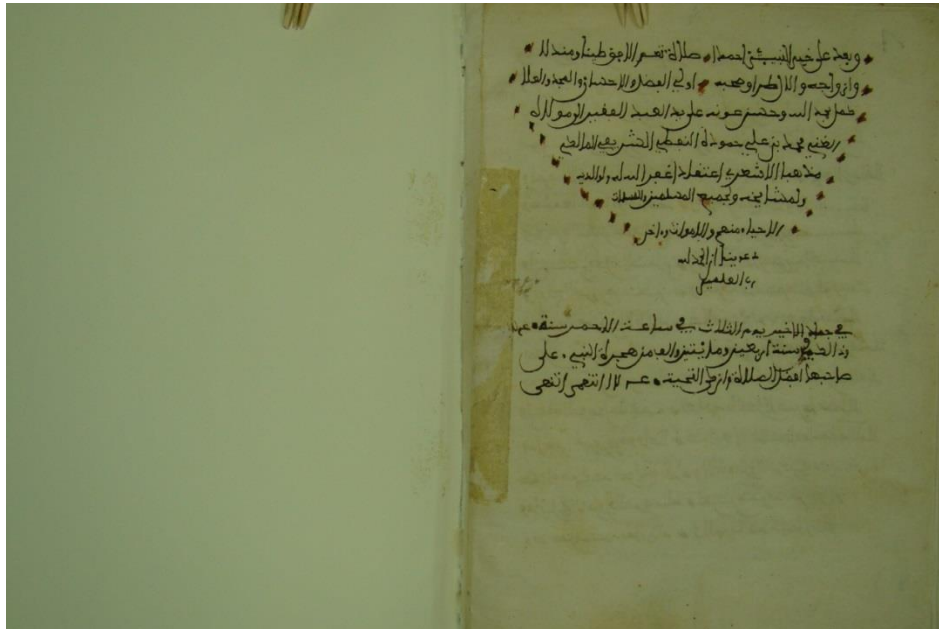 وبعد على خير النبيئين احمدا صلاة تعم الاجو طيبا ومندلا
وازواجه والال طرا وصحبه اولي الفضل والاحسان والمجد والعلا
كمل بحمد الله وحسن عونه على يد العبد الفقير الى مولاه
الغني محمد بن علي حمودة النفطي الشريف المالكي
مذهبا الاشعري اعتقادا غفر الله له ولوالديه
ولمشايخه ولجميع المسلمين والمسلمات
الاحياء منهم والاموات وءاخر
دعوينا ان الحمد لله
رب العلمين
في جماد الاخير يوم الثلاث في ساعت الاحمر سنة
سنة اربعين ومايتين والف من هجرة النبي على
صاحبها افضل الصلاة وازكى التحية انتهى انتهى